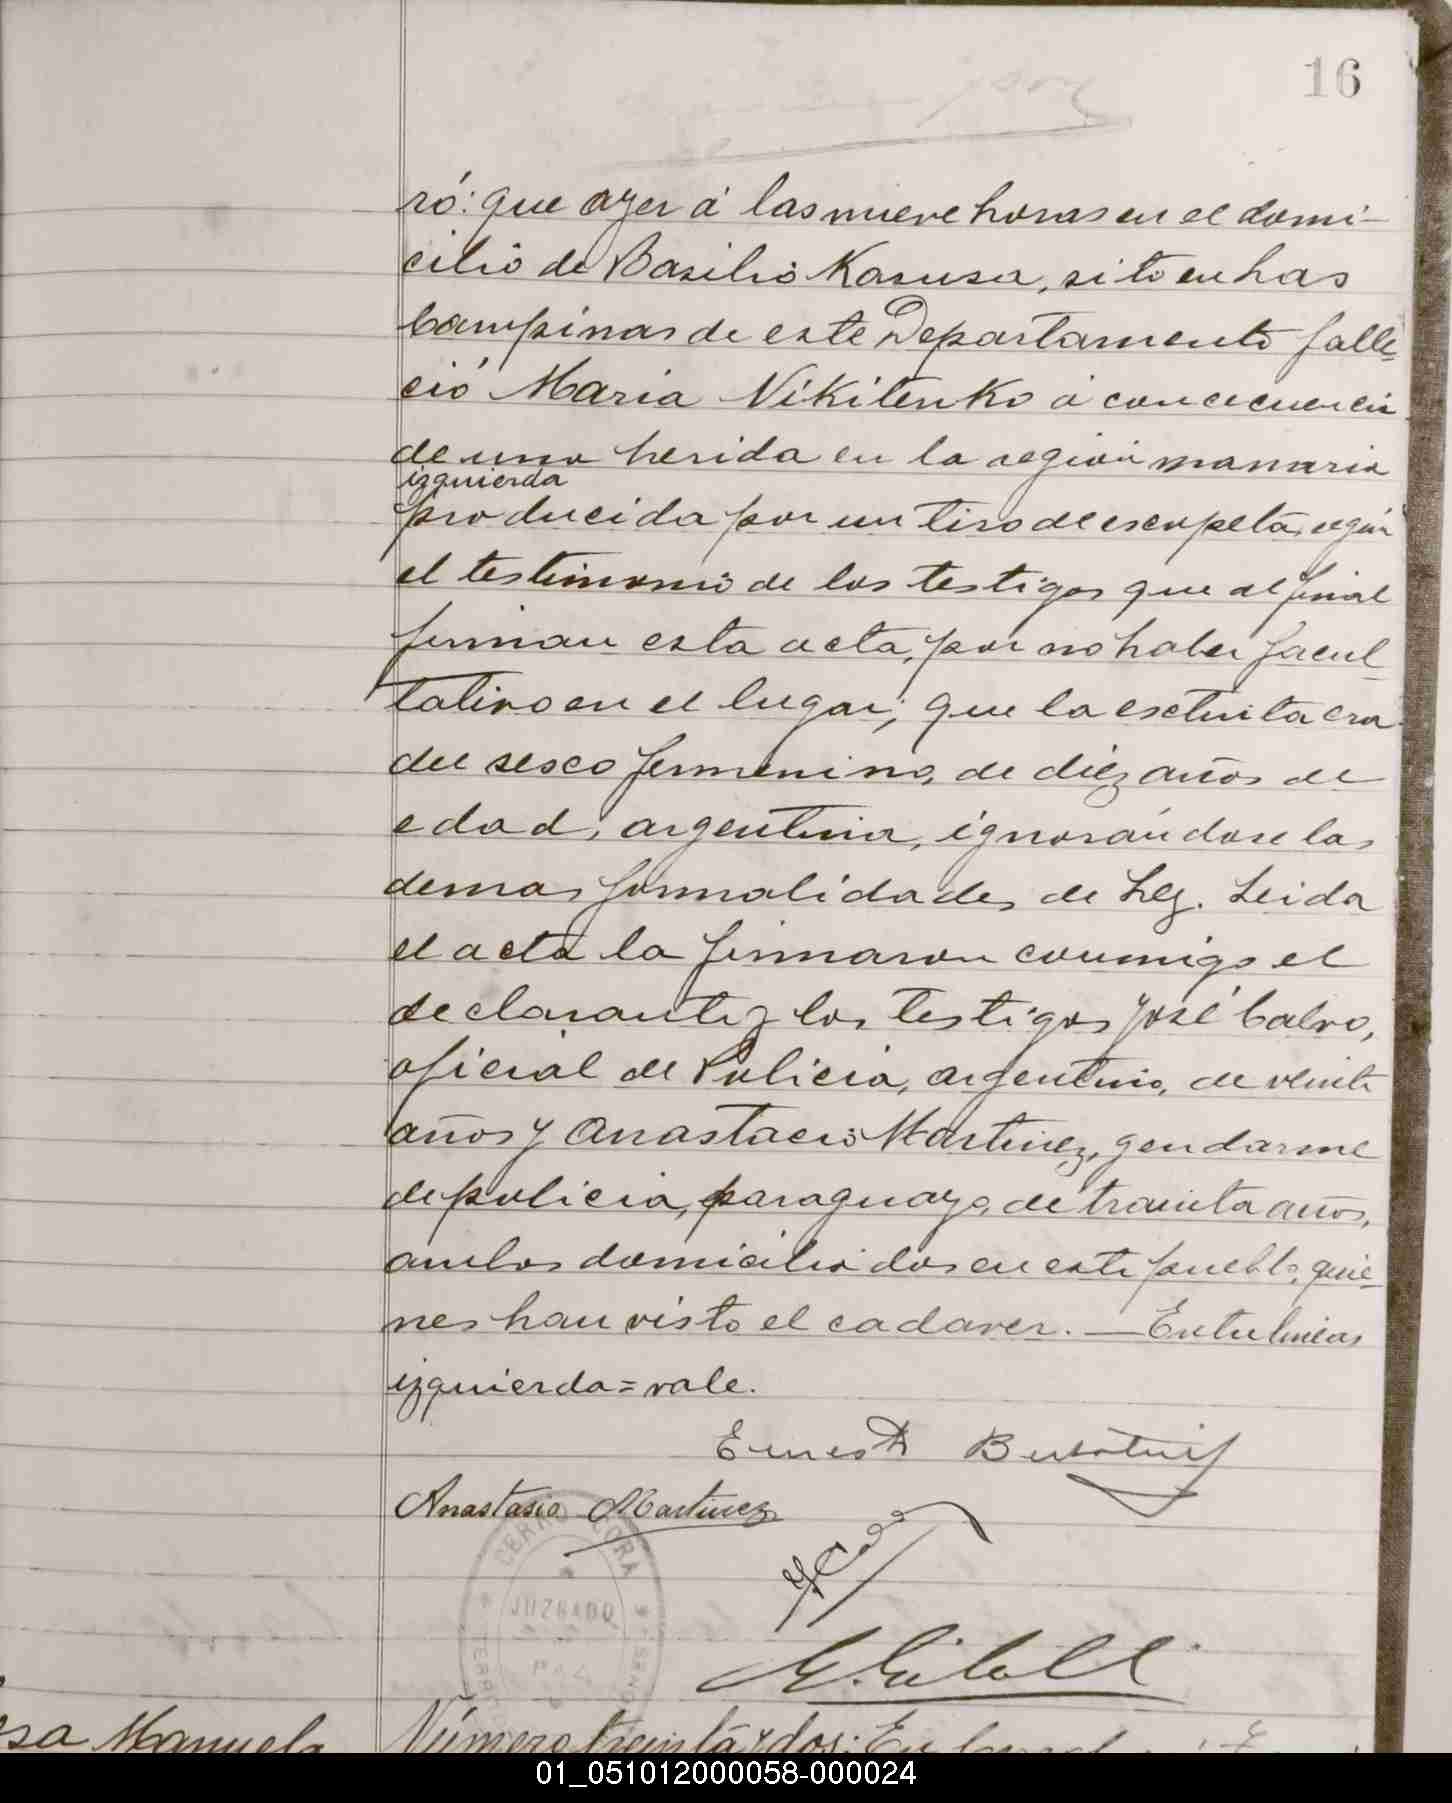 16
ró: que ayer á las nueve horas en el domi-
cilio de Basilio Kasusa, sito en Las
Campinas de este Departamento falle-
ció Maria Nikitenko á concecuencia
de una herida en la región mamaria
izquierda
producida por un tiro de escopeta, según
el testimonio de los testigos que al final
firman esta acta, por no haber facul-
tativo en el lugar; que la extinta era
del sesco femenino, de diéz años de
edad, argentina, ignorándose las
demas formalidades de Ley. Leida
el acta la firmaron conmigo el
declarante y los testigos José Calvo,
oficial de Policia, argentino, de veinte
años y Anastacio Martinez, gendarme
de policia, paraguayo, de trainta años,
ambos domiciliados en este pueblo, quie-
nes han visto el cadaver. — Entrelineas
izquierda = vale.
Ernesto
Anastasio Martinez
CERRO CORA
JUZGADO
PAZ
Manuela
Número treinta y dos: En
01_051012000058-000024